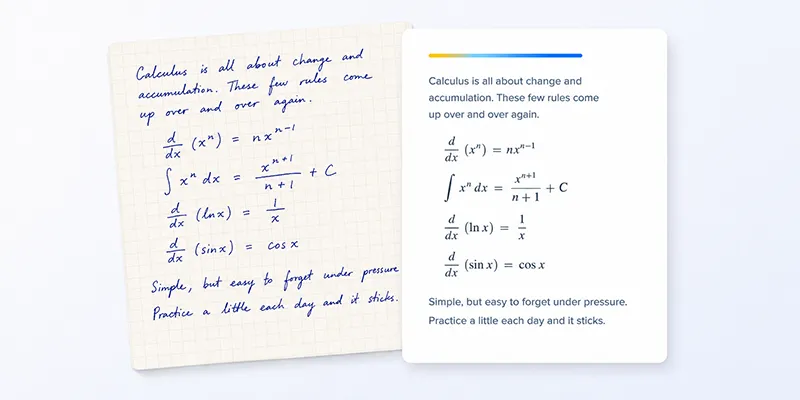 Calculus is all about change and
accumulation. These few rules come
up over and over again.
d/dx (xⁿ) = nxⁿ⁻¹
∫ xⁿ dx = xⁿ⁺¹/n+1 + C
d/dx (lnx) = 1/x
d/dx (sinx) = cosx
Simple, but easy to forget under pressure
Practice a little each day and it sticks.
Calculus is all about change and
accumulation. These few rules come
up over and over again.
d/dx (xⁿ) = nxⁿ⁻¹
∫ xⁿ dx = xⁿ⁺¹/n+1 + C
d/dx (ln x) = 1/x
d/dx (sin x) = cos x
Simple, but easy to forget under pressure.
Practice a little each day and it sticks.